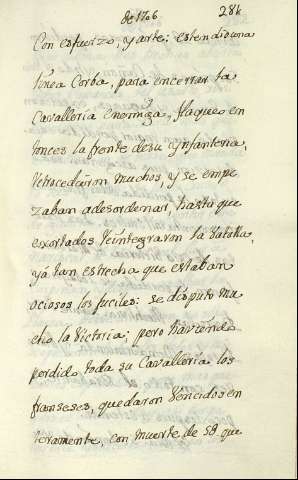 de 1706      286
Con esfuerzo, y arte: estendio una
linea Corba, para encerrar la
Cavalleria enemiga, flaqueo en
tonces la frente de su ynfanteria,
retrocedieron muchos, y se empe
zaban a desordenar, hasta que
exortados reintegraron la batalla,
yá tan estrecha que estaban
ociosos los fuciles: se disputó mu
cho la Victoria; pero haviendo
perdido toda su Cavalleria los
franseses, quedaron Vencidos en
teramente, con muerte de 58 que